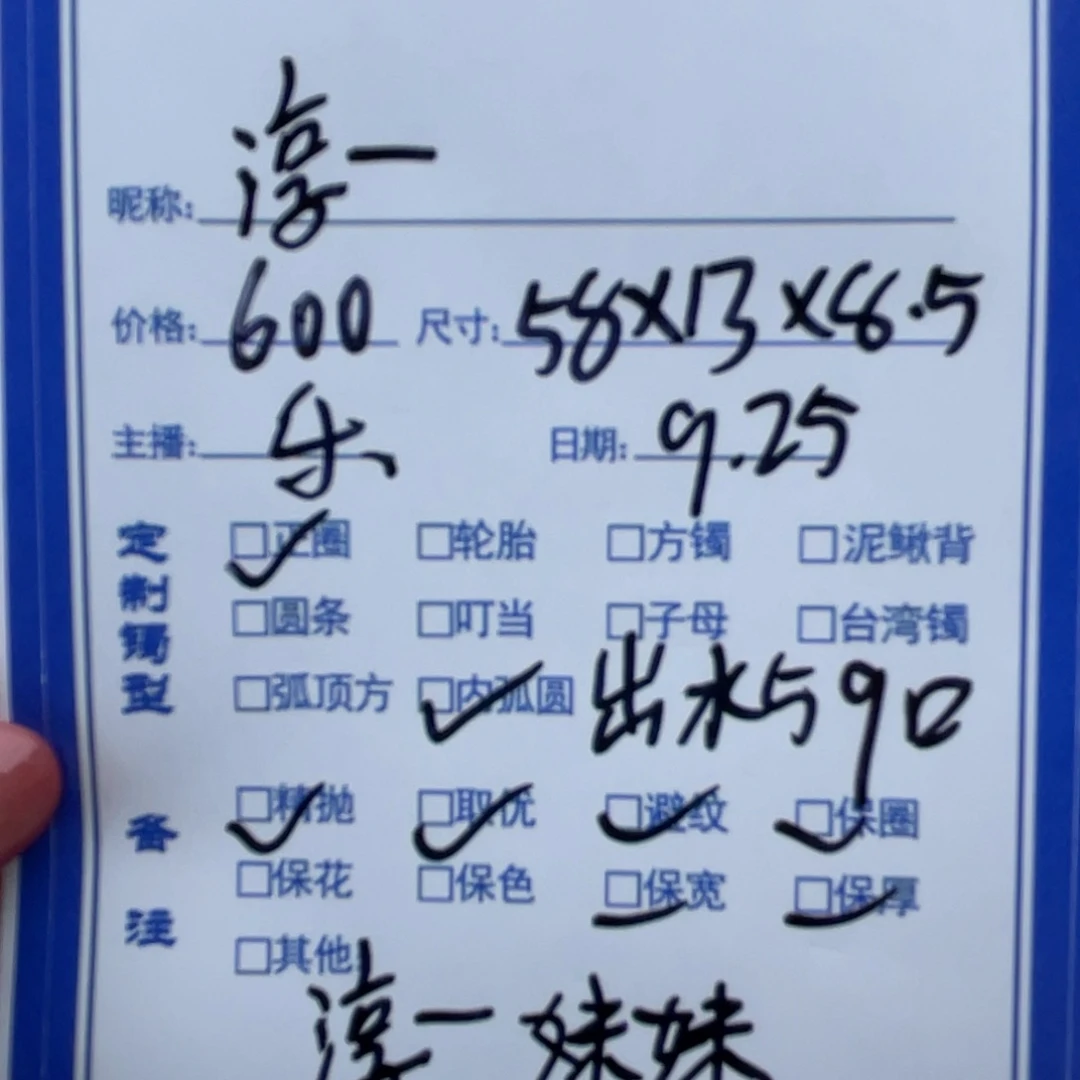 昵称: 淳一
价格: 600 尺寸: 58×13×8.5
主播: 乐 日期: 9.25
定制镯型
□正圈 □轮胎 □方镯 □泥鳅背
□圆条 □叮当 □子母 □台湾镯
□弧顶方 □内弧圆 出水590
备注
□精抛 □取优 □避纹 □保圈
□保花 □保色 □保宽 □保厚
□其他:
淳一妹妹